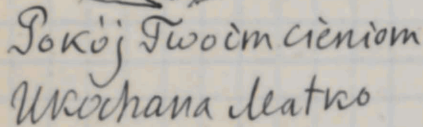 Pokój Twoim cieniom
Ukochana Matko